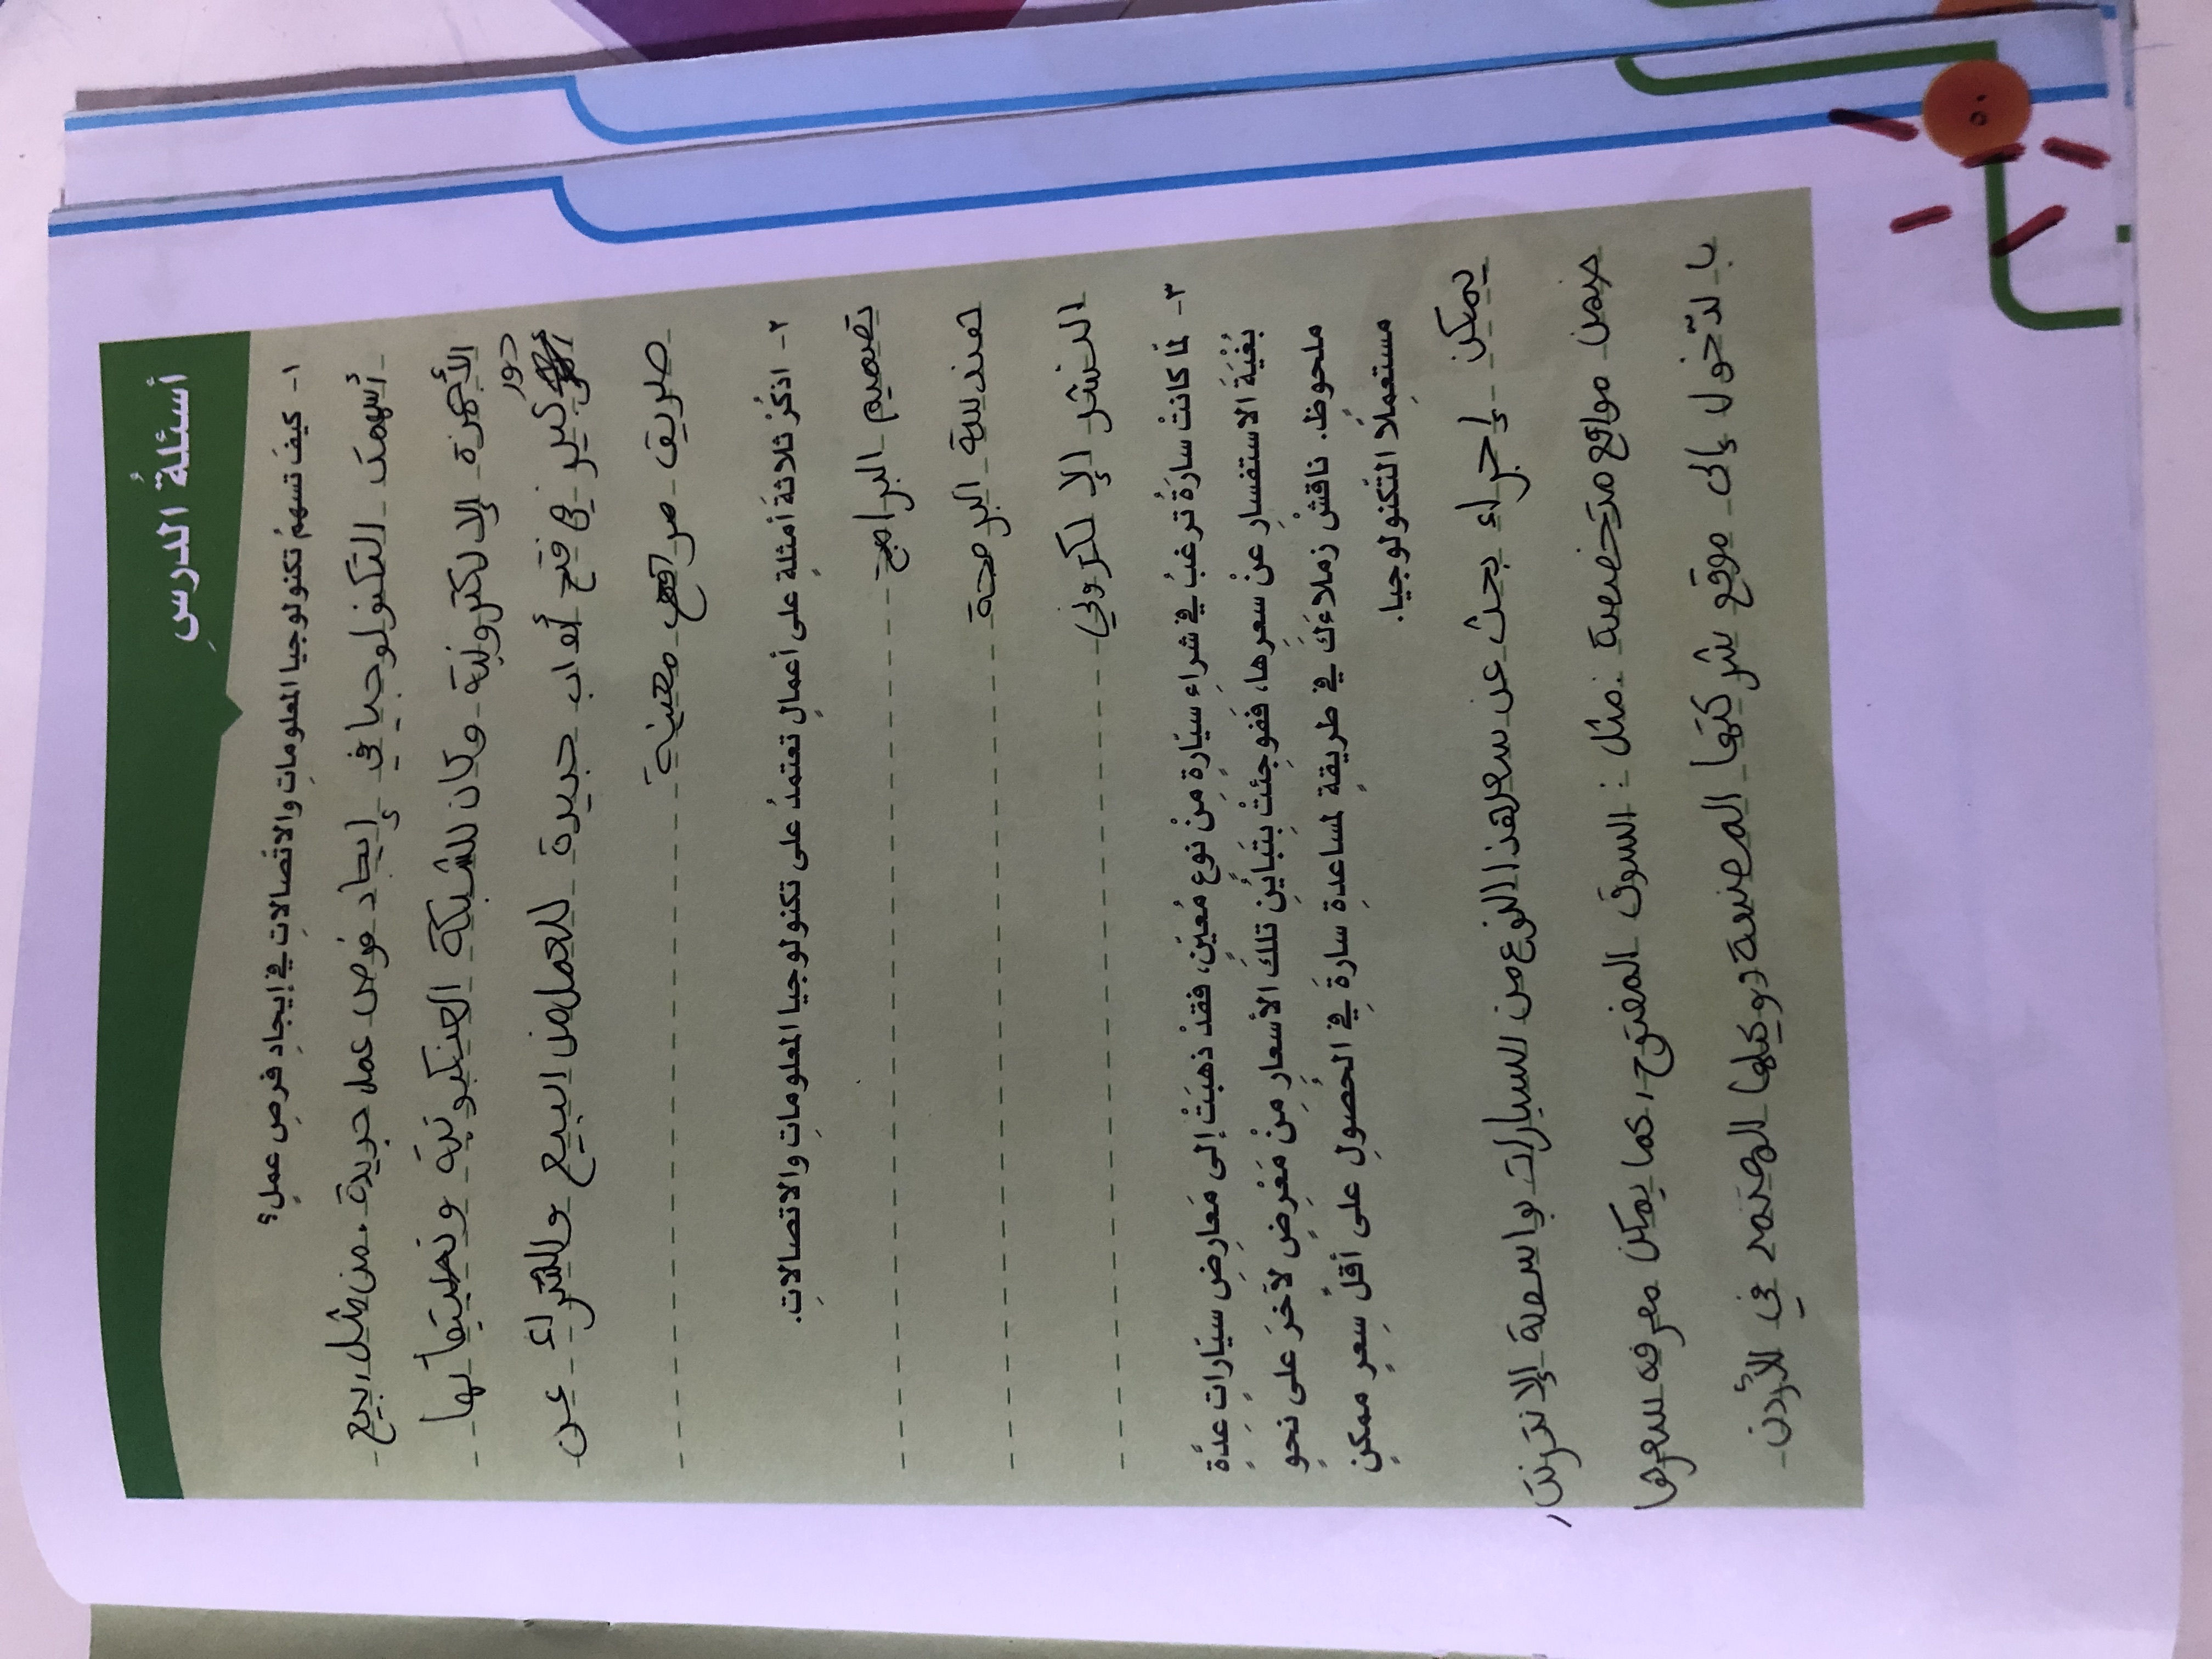 أسئلةُ الدرسِ
١- كيفَ تسهمُ تكنولوجيا المعلوماتِ والاتصالاتِ في إيجادِ فرصِ عملٍ؟
أسهمت التكنولوجيا في إيجاد فرص عمل جديدة. من مثل, بيع
الأجهزة الإلكترونية وكان للشبكة العنكبوتية وتطبيقاتها
دور
كبير في فتح أبواب جديدة للعمل من البيع والشراء عن
طريق مواقع معينة
٢- اذكُرْ ثلاثةَ أمثلةٍ على أعمالٍ تعتمدُ على تكنولوجيا المعلوماتِ والاتصالاتِ.
تصميم البرامج
هندسة البرمجة
النشر الإلكتروني
٣- لمّا كانتْ سارةُ ترغبُ في شراءِ سيّارةٍ مِنْ نوعٍ مُعيّنٍ، فقدْ ذهبَتْ إلى مَعارِضِ سيّاراتٍ عدّةٍ
بُغْيَةَ الاستفسارِ عنْ سعرِها، ففوجئتْ بِتَبايُنِ تلكَ الأسعارِ مِنْ مَعْرِضٍ لآخرَ على نحوٍ
ملحوظٍ. ناقشْ زملاءَكَ في طريقةٍ لمساعدةِ سارةَ في الحُصولِ على أقلِّ سِعرٍ ممكنٍ
مستعمِلًا التكنولوجيا.
يمكن إجراء بحث عن سعر هذا النوع من السيارات بواسطة الإنترنت,
ضمن مواقع متخصصة مثل: السوق المفتوح, كما يمكن معرفه سعرها
بالدّخول إلى موقع شركتها المصنعة ووكيلها المعتمد في الأردن
٥٠